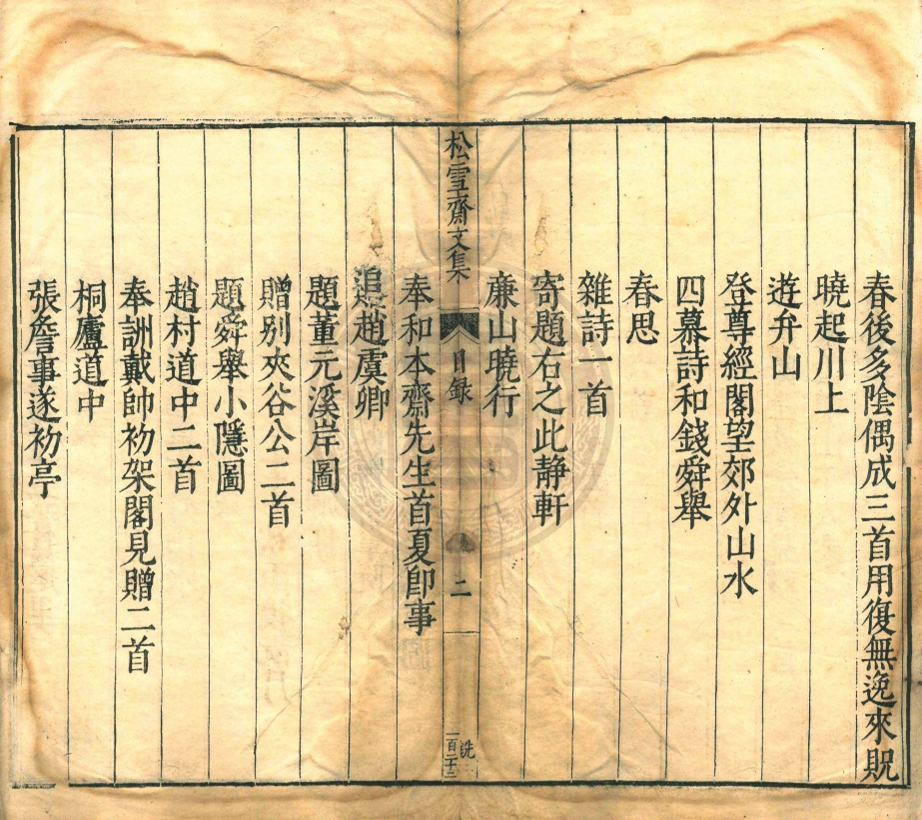 春後多陰偶成三首用復無逸來貺
曉起川上
遊弁山
登尊經閣望郊外山水
四慕詩和錢舜舉
春思
雜詩一首
寄題右之此静軒
廉山曉行
松雪齋文集
目錄
二
洗
一百二十二
奉和本齋先生首夏卽事
趙虞卿
題董元溪岸圖
贈别夾谷公二首
題舜舉小隱圖
趙村道中二首
奉詶戴帥初架閣見贈二首
桐廬道中
張詹事遂初亭